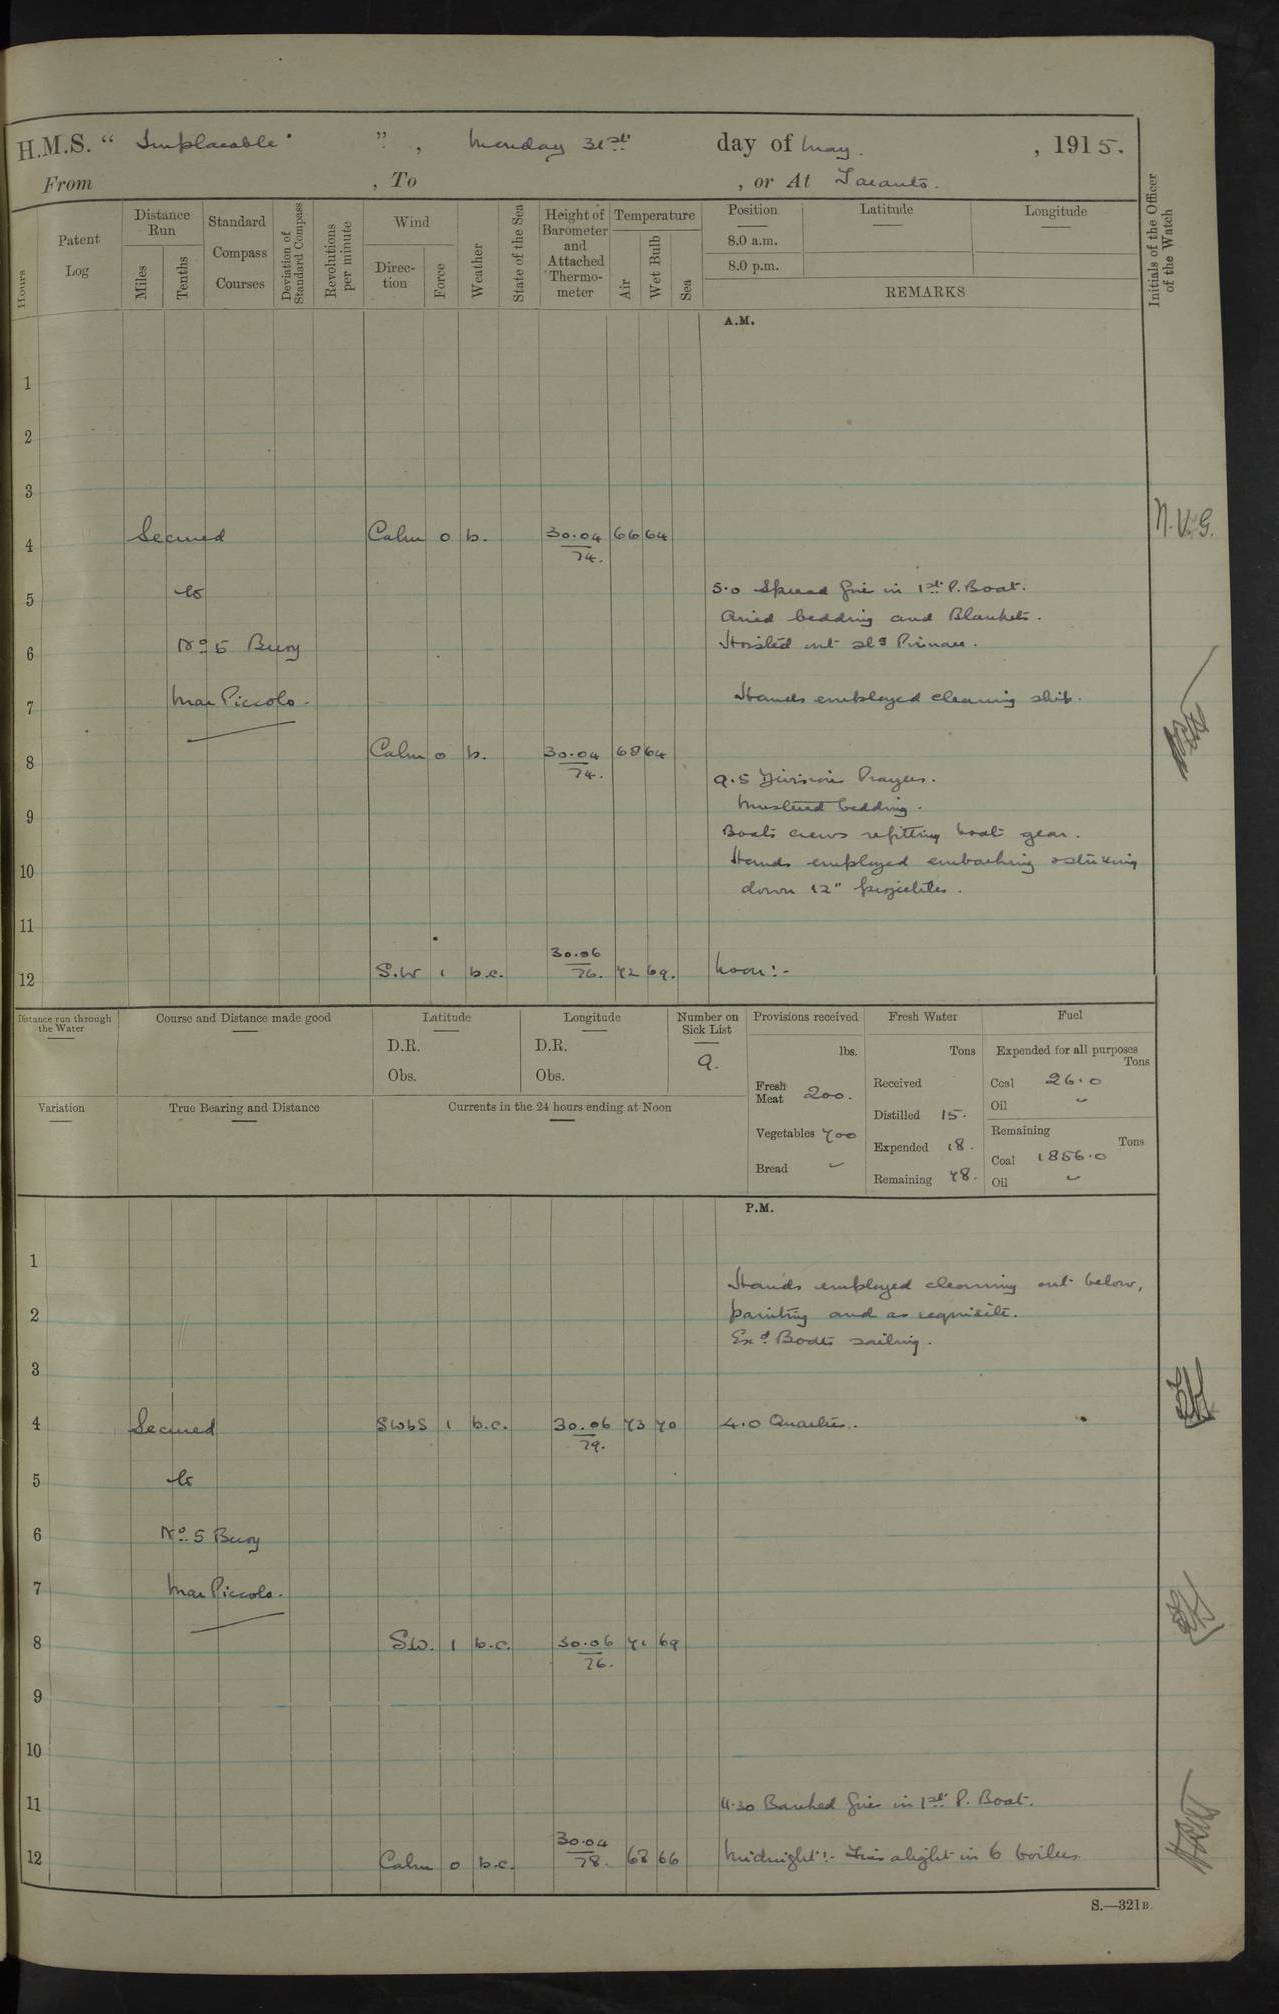 H.M.S. “ Implacable ” , Monday 31st day of May. , 1915.
From , To , or At Taranto.
Hours
Patent Log
Distance Run
Miles
Tenths
Standard Compass Courses
Deviation of Standard Compass
Revolutions per minute
Wind
Direction
Force
Weather
State of the Sea
Height of Barometer and Attached Thermometer
Temperature
Air
Wet Bulb
Sea
Position
8.0 a.m.
8.0 p.m.
Latitude
Longitude
REMARKS
Initials of the Officer of the Watch
A.M.
1
2
3
4 Secured Calm 0 b. 30.04 74. 66 64 N.V.G.
5 to 5.0 Spread fire in 1st P. Boat.
Aired bedding and Blankets.
6 No 5 Buoy Hoisted out slg Pinnace.
7 Mar Piccolo. Hands employed cleaning ship.
8 Calm 0 b. 30.04 74. 68 64
9.5 Divisions Prayers.
Mustered bedding.
9 Boats crews refitting boats gear.
10 Hands employed embarking & striking
down 12" projectiles.
11
12 S.W 1 b.c. 30.06 76. 72 69. Noon:-
Distance run through the Water
Course and Distance made good
Latitude
D.R.
Obs.
Longitude
D.R.
Obs.
Number on Sick List
9.
Provisions received
lbs.
Fresh Meat 200.
Vegetables 700
Bread ~
Fresh Water
Tons
Received
Distilled 15.
Expended 18.
Remaining 78.
Fuel
Expended for all purposes
Tons
Coal 26.0
Oil ~
Remaining
Tons
Coal 1856.0
Oil ~
Variation
True Bearing and Distance
Currents in the 24 hours ending at Noon
P.M.
1
Hands employed cleaning out below,
2 painting and as requisite.
Exd Boats sailing.
3
4 Secured SWbS 1 b.c. 30.06 79. 73 70 4.0 Quarters.
5 to
6 No. 5 Buoy
7 Mar Piccolo.
8 SW. 1 b.c. 30.06 76. 71 69
9
10
11 11.30 Banked fires in 1st P. Boat.
12 Calm 0 b.c. 30.04 78. 68 66 Midnight:- Fires alight in 6 boilers
S.—321B.